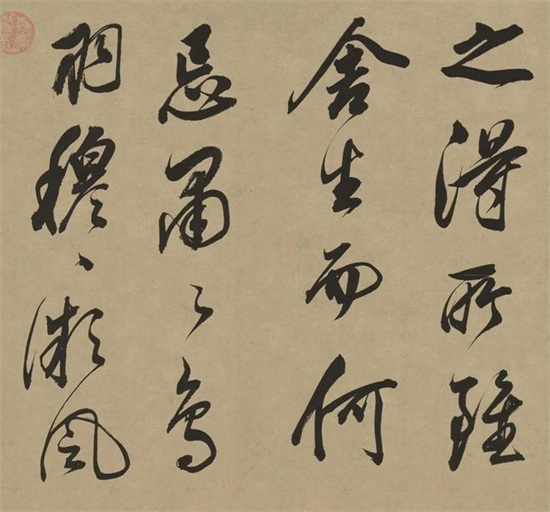 之得所雖
舍生而何
忌肅々鳥
羽穆々微風